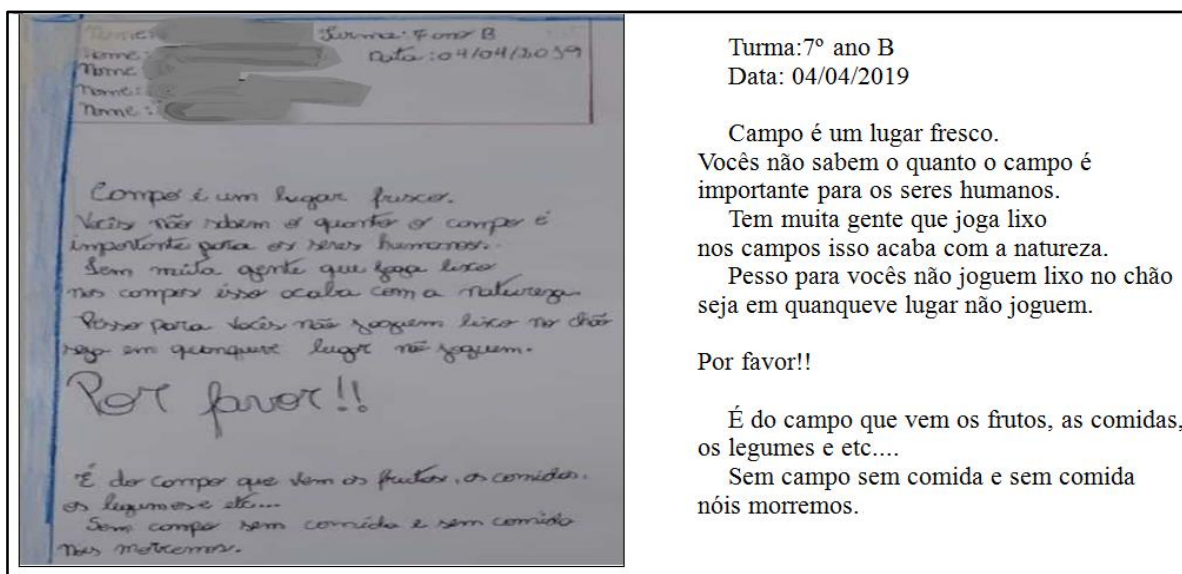 Nome: Turma: 7 ano B
Nome: Data: 04/04/2019
Nome:
Nome:
Nome:
Campo é um lugar fresco.
Vocês não sabem o quanto o campo é
importante para os seres humanos.
Tem muita gente que joga lixo
nos campos isso acaba com a natureza
Pesso para vocês não joguem lixo no chão
seja em quanqueve lugar não joguem.
Por favor!!
É do campo que vem os frutos, as comidas,
os legumes e etc...
Sem campo sem comida e sem comida
nois morremos.
Turma:7º ano B
Data: 04/04/2019
Campo é um lugar fresco.
Vocês não sabem o quanto o campo é
importante para os seres humanos.
Tem muita gente que joga lixo
nos campos isso acaba com a natureza.
Pesso para vocês não joguem lixo no chão
seja em quanqueve lugar não joguem.
Por favor!!
É do campo que vem os frutos, as comidas,
os legumes e etc....
Sem campo sem comida e sem comida
nóis morremos.